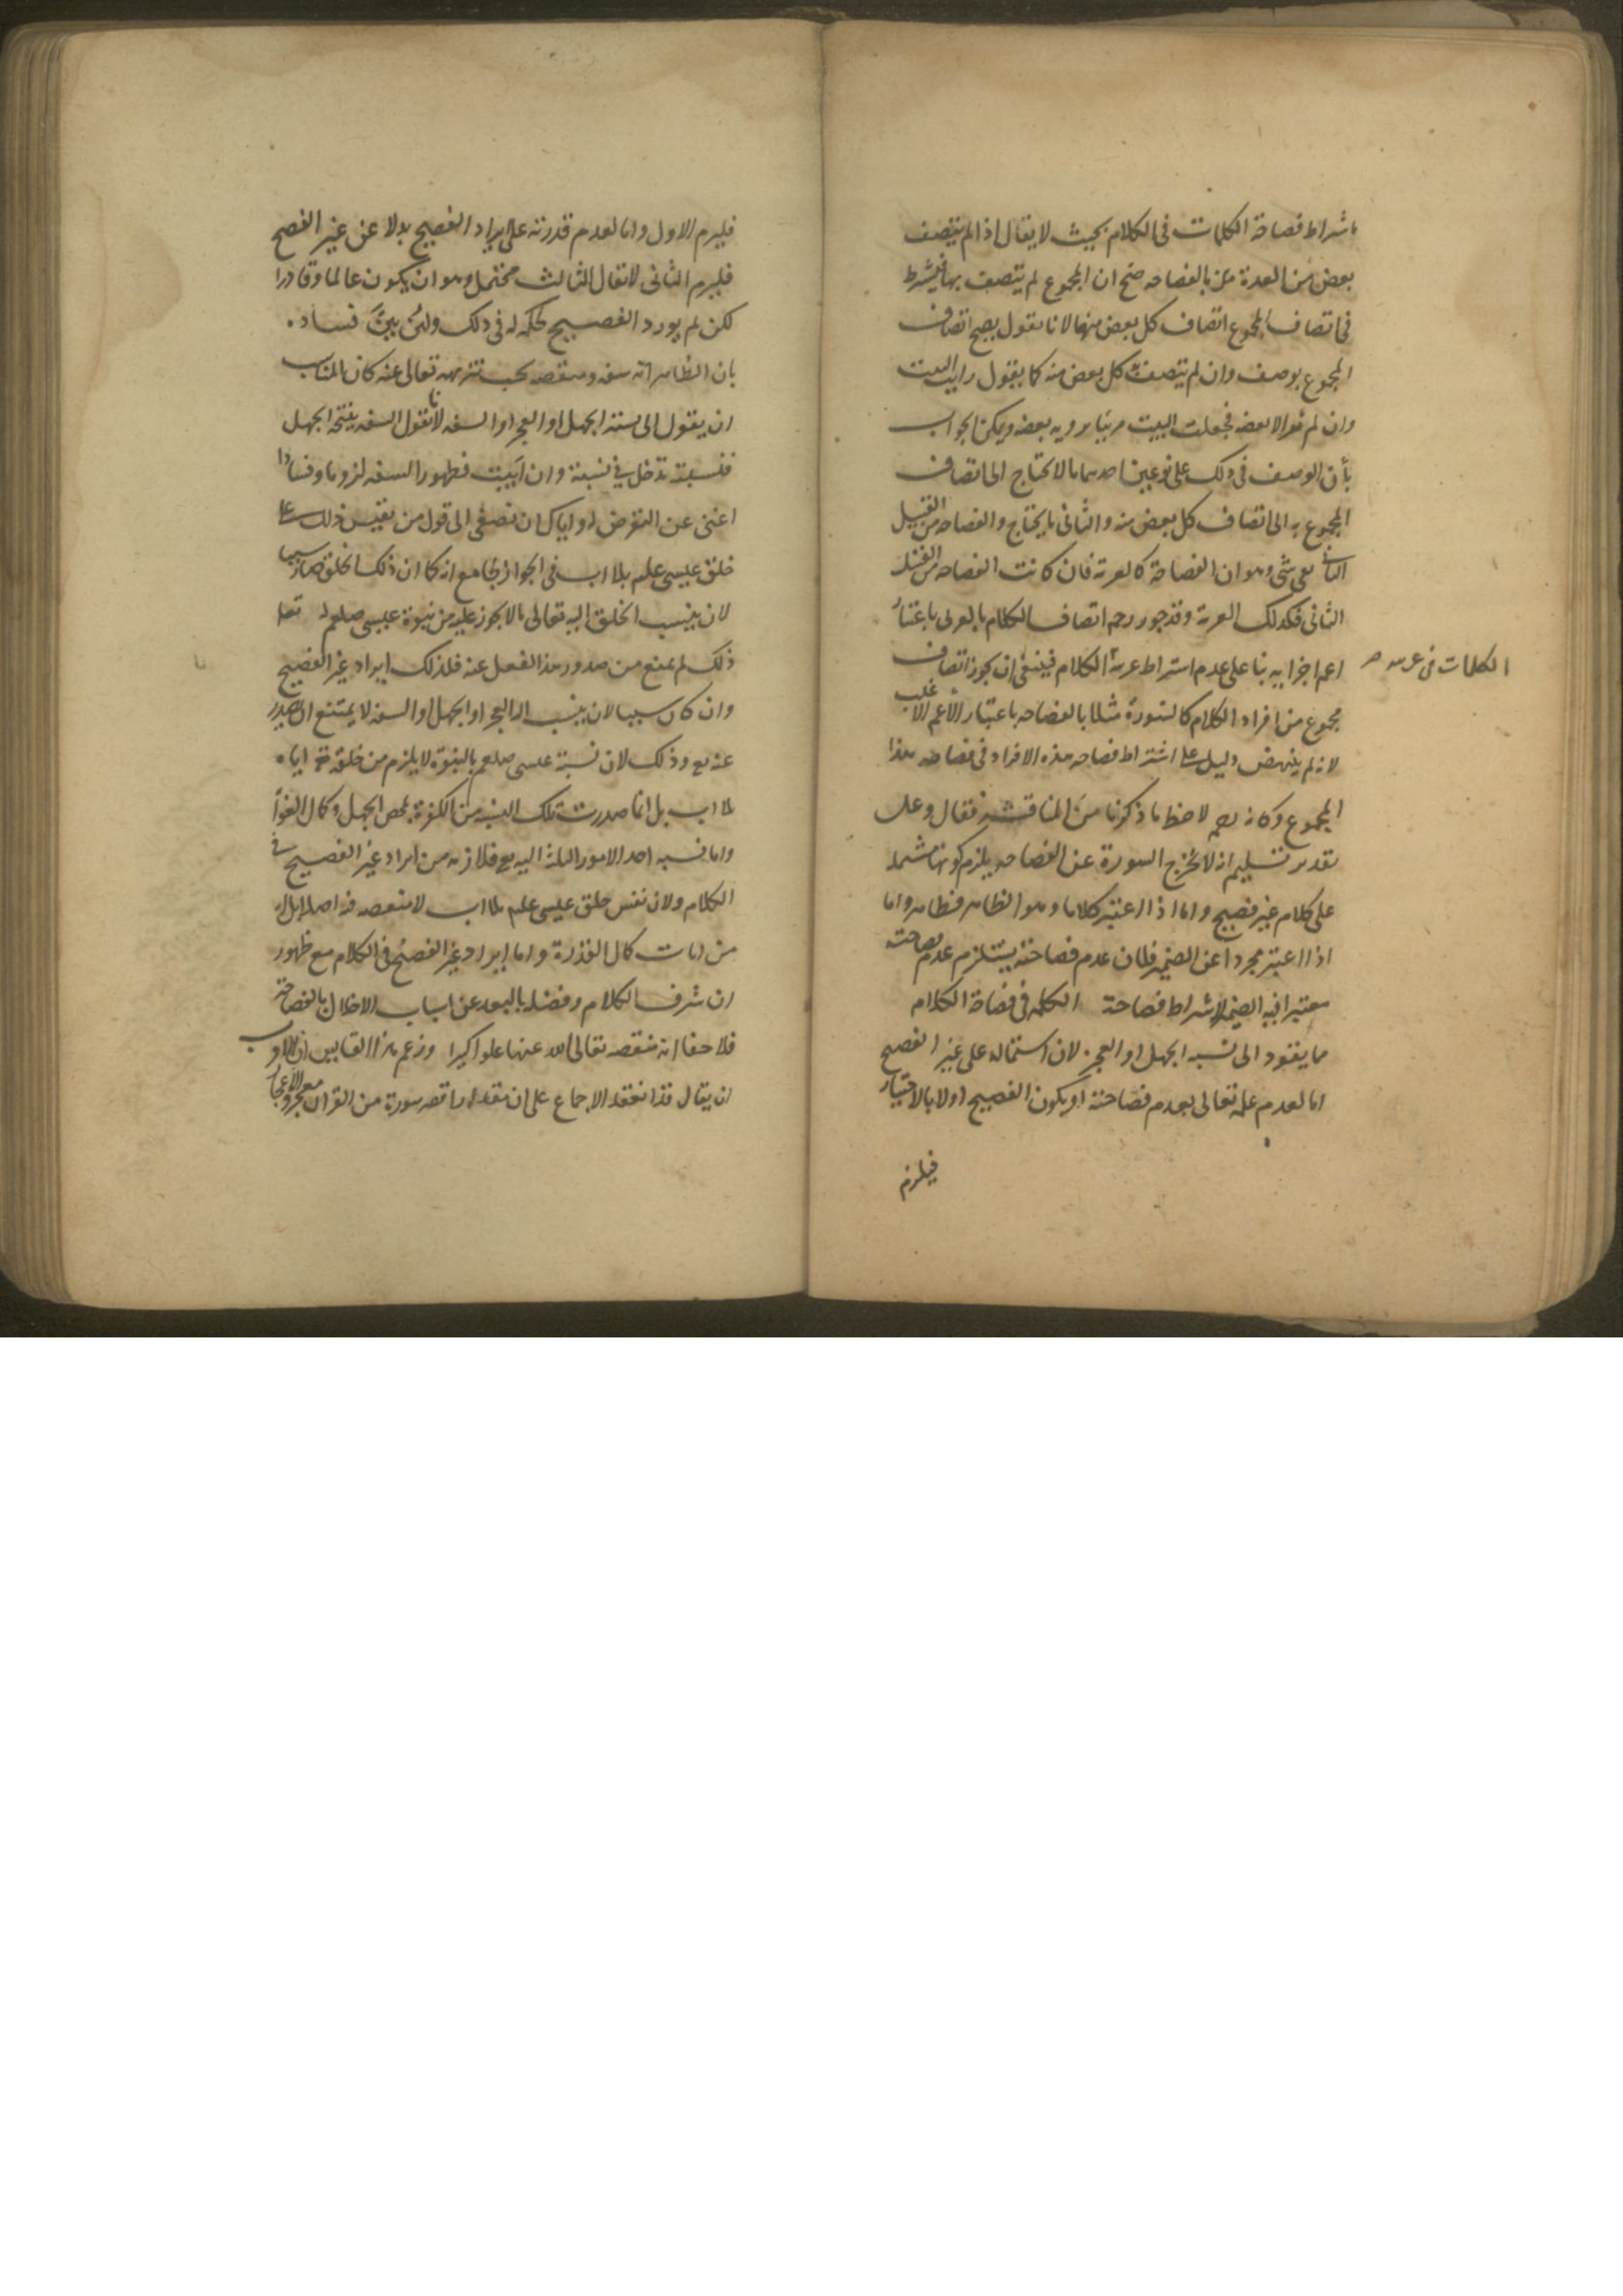 باشراط فصاحة الكلمات فى الكلام بحيث لا يقال اذا لم يتصف
بعض من العدة بالفصاحه صح ان المجموع لم يتصف بها فيشرط
فى اتصاف المجموع اتصاف كل بعض منها لانا نقول يصح اتصاف
المجموع بوصف وان لم يتصف كل بعض منه كما يقول رايت البيت
وان لم الا بعضه فجعلت البيت مرئيا برويه بعضه ويمكن الجواب
بأن الوصف فى ذلك على نوعين احدهما ما لا يحتاج الى اتصاف
المجموع به الى اتصاف كل بعض منه والثانى ما يحتاج والفصاحه من القبيل
الثانى بقى شى وهو ان الفصاحة كالعربة فان كانت الفصاحه من القبيل
الثانى فكذلك العربة وقد جوز اتصاف الكلام بالعربى باعتبار
اعم اجزايه بنا على عدم اشتراط عربة الكلام فينبغى ان يجوز اتصاف
الكلمات فى عربه
مجموع من افراد الكلام كالسورة مثلا بالفصاحه باعتبار الأعم الاغلب
لانه لم ينهض دليل على اشتراط فصاحه هذه الافراد فى فصاحه هذا
المجموع وكانه لاحظ ما ذكرنا من المناقشة فقال وعلى
تقدير تسليم انه لا تخرج السورة عن الفصاحه يلزم كونها مشتمله
على كلام غير فصيح واما اذا اعتبر كلاما وهو الظاهر فظاهر واما
اذا اعتبر مجردا عن الضمير فلان عدم فصاحته يستلزم عدم فصاحته
معتبرا فيه الضمير لاشراط فصاحة الكلمه فى فصاحة الكلام
مما يقود الى نسبه الجهل او العجز لان استماله على غير الفصيح
اما لعدم علمه تعالى بعدم فصاحته او بكون الفصيح اولا بالاختيار
فيلزم
فيلزم الاول واما لعدم قدرته على ايراد الفصيح بدلا عن غير الفصيح
فيلزم الثانى لا يقال الثالث محتمل وهو ان يكون عالما وقادرا
لكن لم يورد الفصيح لحكمه له فى ذلك ولئن بين فساده
بان الظاهر انه سفه ومنقصه يجب تنزيهه تعالى عنه كان المناسب
ان يقول الى نسبة الجهل او العجز او السفه لانا نقول السفه ينتجه الجهل
فنسبته تدخل فى نسبته وان ابيت فظهور السفه لزوما وفسادا
اغنى عن التعرض او اياك ان تصغى الى قول من يقيس ذلك على
خلق عيسى علم بلا اب فى الجواز بجامع انه كما ان ذلك الخلق صار سببا
لان ينسب الخلق اليه تعالى ما لا يجوز عليه من نبوة عيسى صلعم له تعا
ذلك لم يمنع من صدور هذا الفعل عنه فلذلك ايراد غير الفصيح
وان كان سببا لان ينسب اليه العجز او الجهل او السفه لا يمتنع ان يصدر
عنه تع وذلك لان نسبة عيسى صلعم بالنبوة لا يلزم من خلقه اياه
بلا اب بل انما صدرت تلك النسبه من الكفرة بمحض الجهل وكمال الغوا
واما نسبه احد الامور الثلثه اليه تع فلازمه من ايراد غير الفصيح فى
الكلام ولان نفس خلق عيسى علم بلا اب لا منقصه فيه اصلا بل
من امارت كمال القدرة واما ايراد غير الفصيح فى الكلام مع ظهور
ان شرف الكلام وفضله بالبعد عن اسباب الاخلال بالفصاحة
فلا خفا انه منقصه تعالى الله عنها علوا كبيرا وزعم هذا القايس ان الاوب
ان يقال قد انعقد الاجماع على ان مقدار اقصر سورة من القران معجز والاعجا